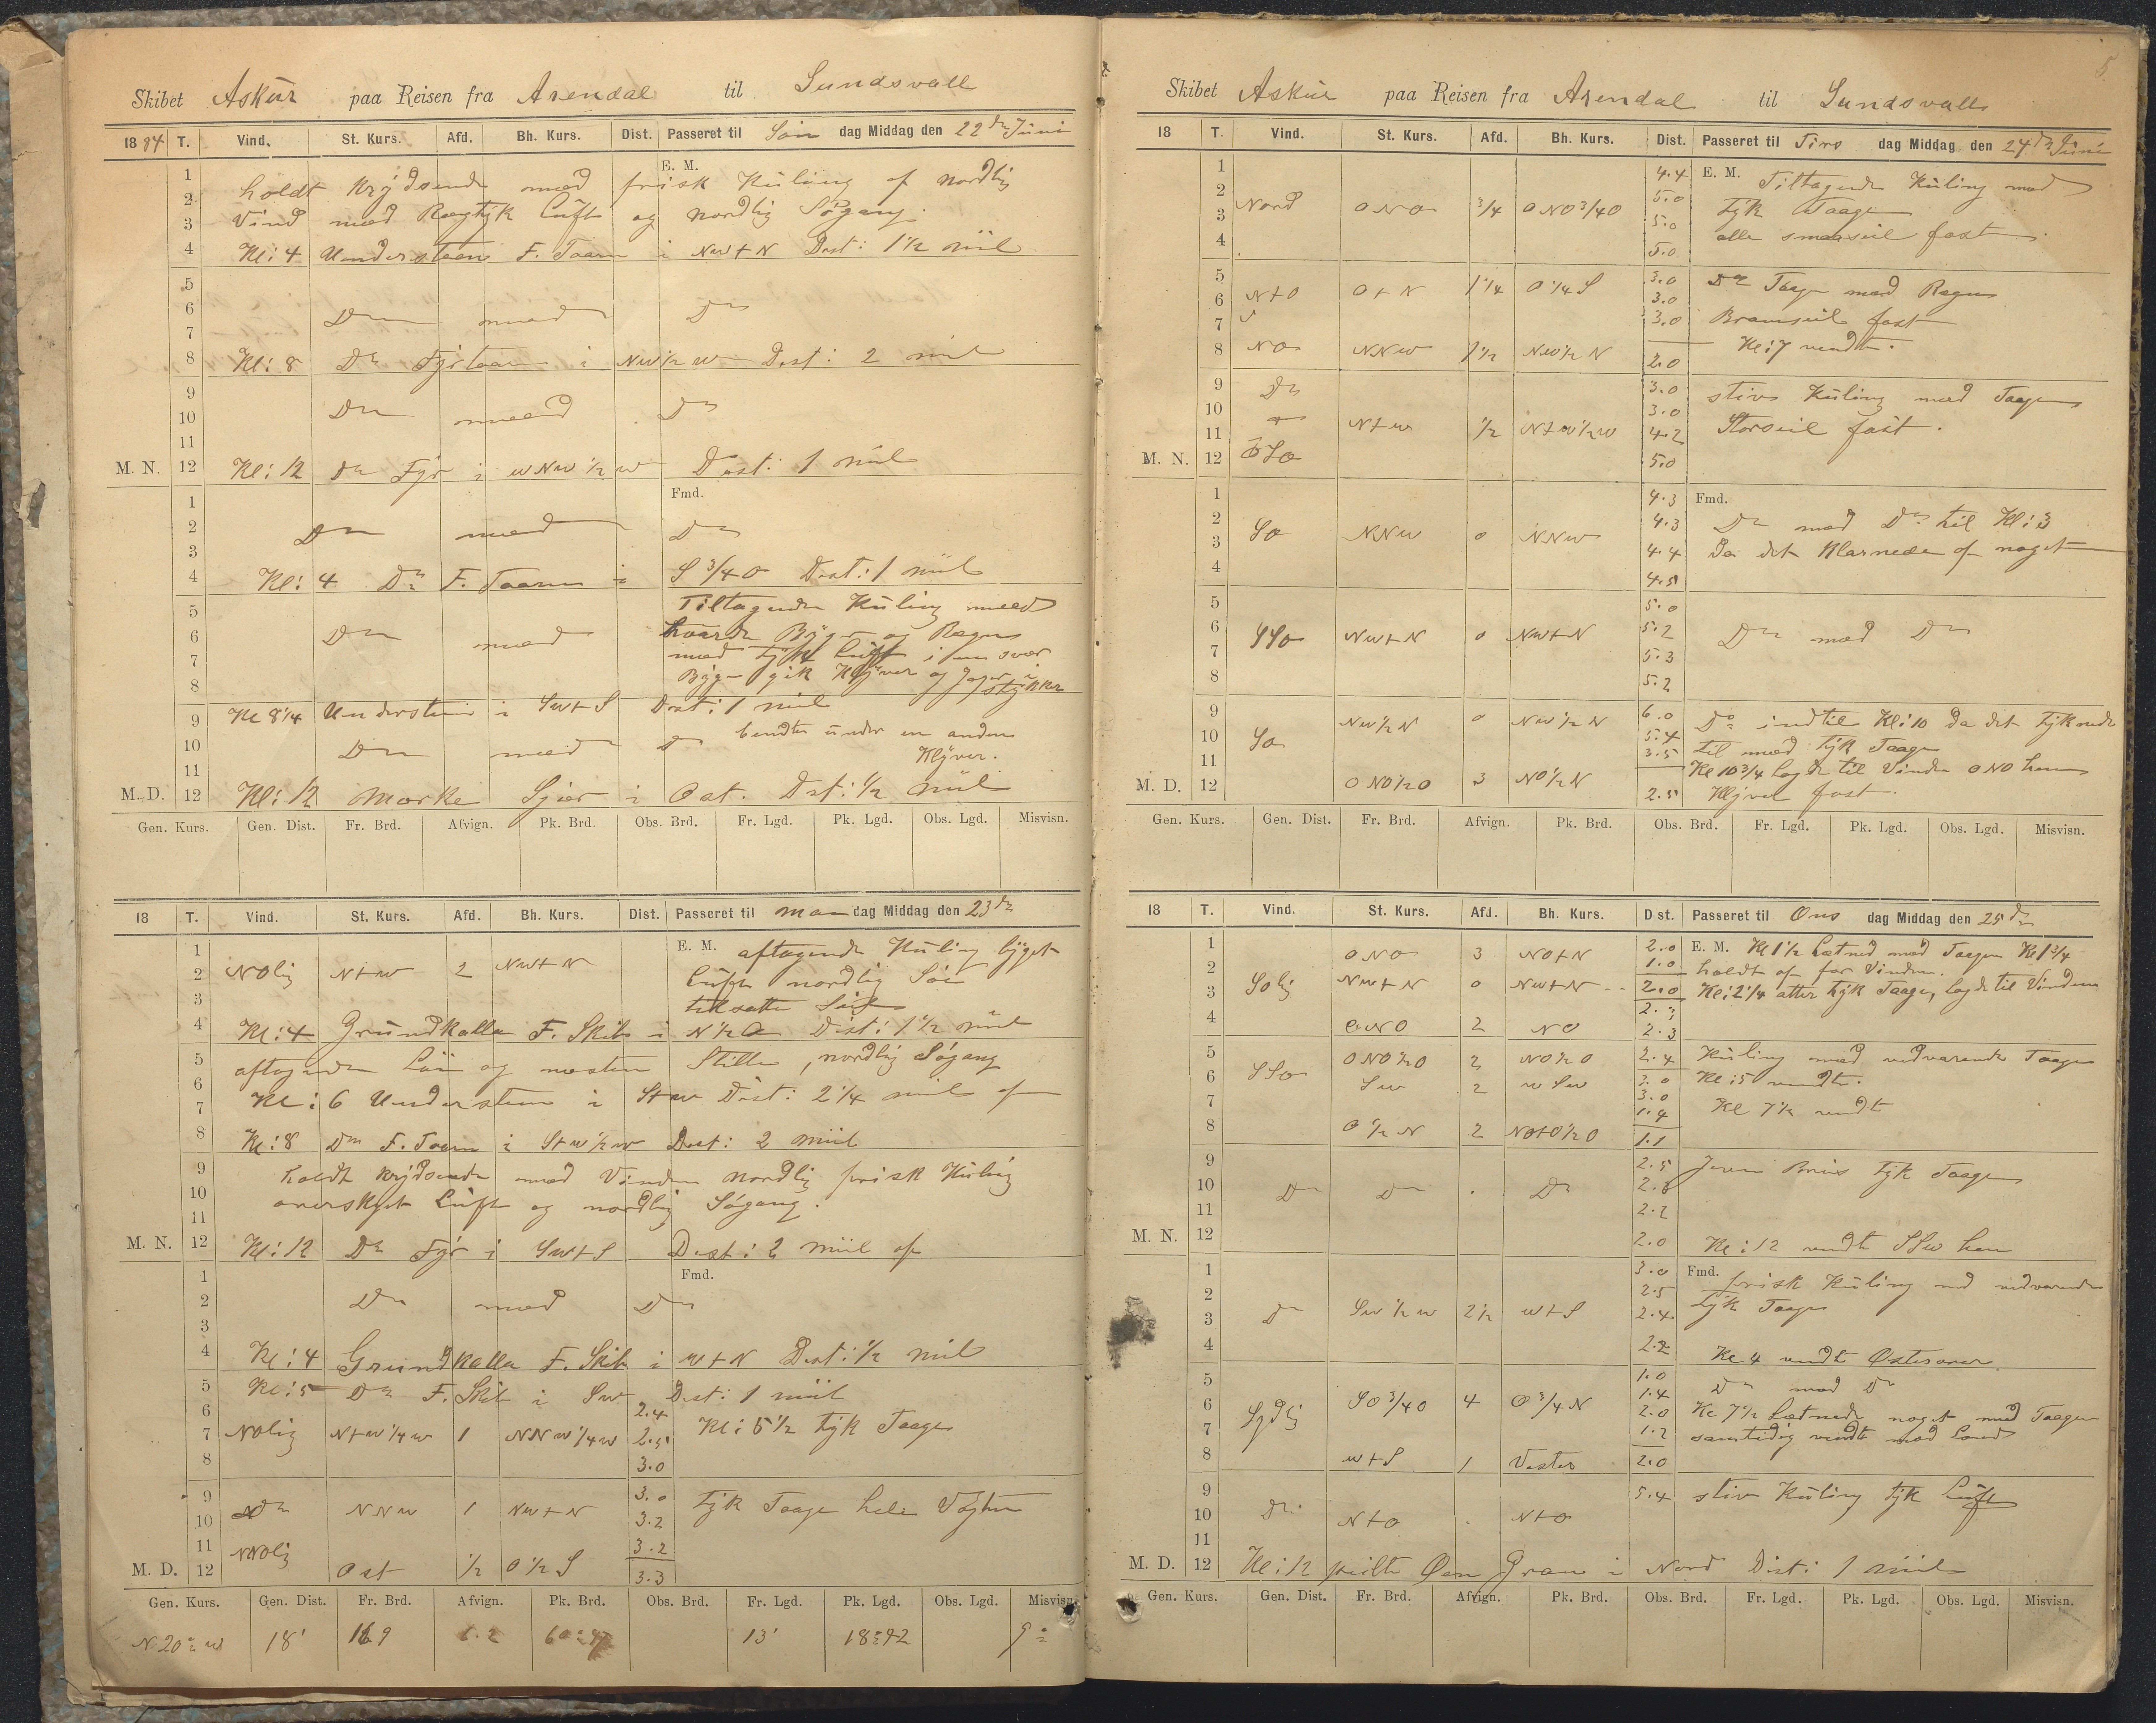 Skibet Askur paa Reisen fra Arendal til Sundsvall
1884 T. Vind. St. Kurs. Afd. Bh. Kurs. Dist. Passeret til Søn dag Middag den 22de Juni
E. M.
1
2 holdt krydsende med frisk Kuling af nordlig
3 Vind med Regtyk Luft og nordlig Søgang.
4 Kl: 4 Understeen F. Taarn i NW+N Dist: 1 1/2 miil
5
6 Do med Do
7
8 Kl: 8 Do Fyrtaarn i NW 1/2 W Dist: 2 miil
9
10 Do med Do
11
M. N. 12 Kl: 12 Do Fyr i WNW 1/2 W Dist: 1 miil
Fmd.
1
2 Do med Do
3
4 Kl: 4 Do F. Taarn i S 3/4 O Dist: 1 miil
5 Tiltagende Kuling med
6 Do med haarde Byger og Regn
7 med tyk Luft i en svær
8 Byge gik Klyver og Jager i stykker
9 Kl 8 1/4 Understeen i SW+S Dist: 1 miil
10 Do med Do bendte under en anden
11 Klyver.
M. D. 12 Kl: 12 Marke i Ost. Dist: 1/2 miil
Gen. Kurs. Gen. Dist. Fr. Brd. Afvign. Pk. Brd. Obs. Brd. Fr. Lgd. Pk. Lgd. Obs. Lgd. Misvisn.
18 T. Vind. St. Kurs. Afd. Bh. Kurs. Dist. Passeret til Man dag Middag den 23de
1 E. M. aftagende Kuling byget
2 NOlig N+W 2 NW+N Luft nordlig Sø
3 tilsatte Seil
4 Kl: 4 Grundkalla F. Skib i N 1/2 O Dist: 1 1/2 miil
5 aftagende og næsten Stille, nordlig Søgang
6
7 Kl: 6 Understeen i S+W Dist: 2 1/4 miil af
8 Kl: 8 Do F. Taarn i S+W 1/2 W Dist: 2 miil
9 holdt krydsende med Vinden nordlig frisk Kuling
10 overskyet Luft og nordlig Søgang.
11
M. N. 12 Kl: 12 Do Fyr i SW+S Dist: 2 miil af
Fmd.
1
2 Do med Do
3
4 Kl: 4 Grundkalla F. Skib i W+N Dist: 1/2 miil
5 Kl: 5 Do F. Skib i SW Dist: 1 miil
6 2.4
7 NOlig N+W 1/4 W 1 NNW 1/4 W 2.5 Kl: 5 1/2 tyk Taage
8 3.0
9 3.0
10 Do NNW 1 NW+N 3.2 tyk Taage hele Vagten
11 NNOlig 3.2
M. D. 12 Ost 1/2 O 1/2 S 3.3
Gen. Kurs. Gen. Dist. Fr. Brd. Afvign. Pk. Brd. Obs. Brd. Fr. Lgd. Pk. Lgd. Obs. Lgd. Misvisn.
N 20° W 18' 13' 9°
5
Skibet Askur paa Reisen fra Arendal til Sundsvall
18 T. Vind. St. Kurs. Afd. Bh. Kurs. Dist. Passeret til Tirs dag Middag den 24de Juni
1 4.4 E. M. Tiltagende Kuling med
2 5.0 tyk Taage
3 Nord ONO 3/4 ONO 3/4 O 5.0 alle smaaseil fast.
4 5.0
5 3.0 Do Taage med Regn
6 N+O O+N 1 1/4 O 1/4 S 3.0
7 3.0 Bramseil fast
8 NO NNW 1 1/2 NW 1/2 N 2.0 Kl: 7 vendte.
9 Do 3.0 stiv Kuling med Taage
10 3.0
11 N+W 1/2 N+W 1/2 W 4.2 Storseil fast.
M. N. 12 OSO 5.0
1 4.3 Fmd.
2 4.3 Do med Do til Kl: 3
3 SO NNW 0 NNW 4.4 Da det klarnede af noget
4 4.5
5 5.0
6 SSO NW+N 0 NW+N 5.2 Do med Do
7 5.3
8 5.2
9 NW 1/2 N 0 NW 1/2 N 6.0 Do indtil Kl: 10 Da det tyknede
10 SO 5.4 til med tyk Taage
11 3.5 Kl 10 3/4 lagde til Vinden ONO hen
M. D. 12 ONO 1/2 O 3 NO 1/2 N 2.5 Klyver fast.
Gen. Kurs. Gen. Dist. Fr. Brd. Afvign. Pk. Brd. Obs. Brd. Fr. Lgd. Pk. Lgd. Obs. Lgd. Misvisn.
18 T. Vind. St. Kurs. Afd. Bh. Kurs. Dist. Passeret til Ons dag Middag den 25de
1 ONO 3 NO+N 2.0 E. M. Kl 1 1/2 Letned med Taagen Kl 1 3/4
2 1.0 holdt af for Vinden.
3 SOlig NW+N 0 NW+N 2.0 Kl: 2 1/4 atter tyk Taage, lagde til Vinden
4 ONO 2 NO 2.3
5 ONO 1/2 O 2 NO 1/2 O 2.4 Kuling med vedvarende Taage
6 SSO SW 2 WSW 3.0 Kl: 5 vendte.
7 3.0 Kl 7 1/2 vendte
1.4
8 O 1/2 N 2 NO+O 1/2 O 1.1
9 2.5 Jevn Bris tyk Taage
10 Do Do . Do
11 2.2
M. N. 12 2.0 Kl: 12 vendte SSW hen
1 3.0 Fmd. frisk Kuling med vedvarende
2 2.5 tyk Taage
3 Do SW 1/2 W 2 1/2 W+S 2.4
4 2.2 Kl 4 vendte Østerover.
5 1.0 Do med Do
6 SO 3/4 O 4 O 3/4 N 1.4
7 Sydlig 2.0 Kl 7 1/2 Letnede noget med Taagen
1.2 samtidig vendte mod Land
8 W+S 1 Vester 2.0
9 5.4 stiv Kuling tyk Luft
10 Do N+O . N+O
11
M. D. 12 Kl: 12 peilte Øen Gran i Nord Dist: 1 miil
Gen. Kurs. Gen. Dist. Fr. Brd. Afvign. Pk. Brd. Obs. Brd. Fr. Lgd. Pk. Lgd. Obs. Lgd. Misvisn.